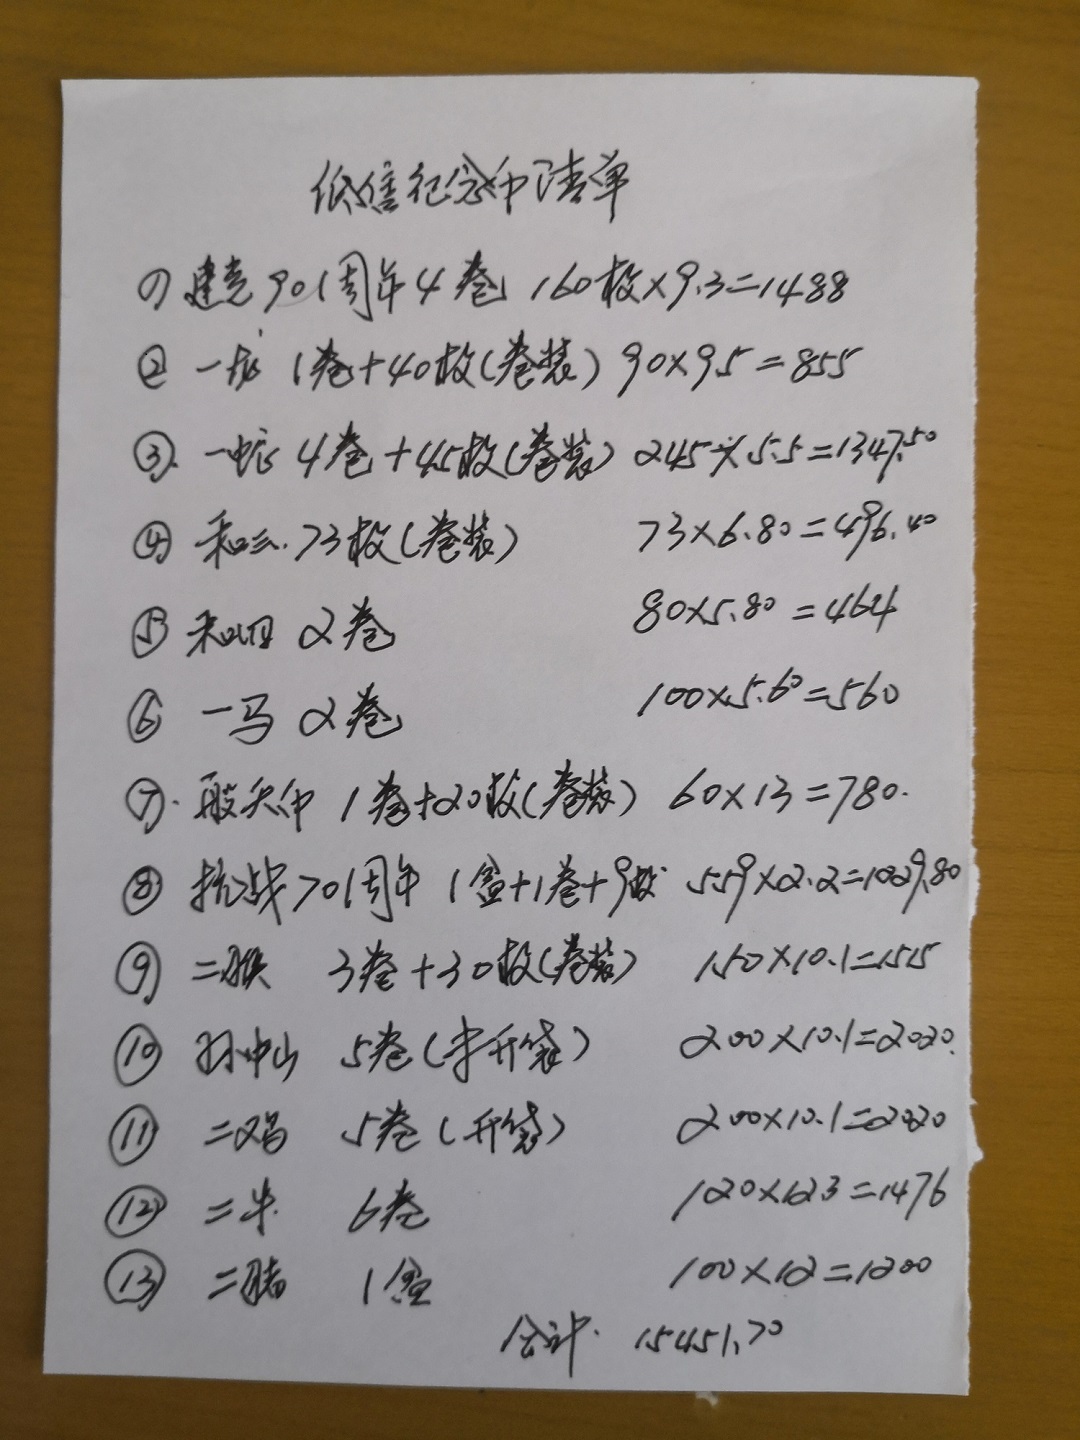 低售纪念币清单
① 建党90周年4卷 160枚×9.3=1488
② 一龙 1卷+40枚(卷装) 90×9.5=855
③. 一蛇 4卷+45枚(卷装) 245×5.5=1347.50
④ 和三.73枚(卷装) 73×6.80=496.40
⑤ 和四 2卷 80×5.80=464
⑥ 一马 2卷 100×5.60=560
⑦. 航天币 1卷+20枚(卷装) 60×13=780.
⑧ 抗战70周年 1盒+1卷+9枚 559×2.2=1029.80
⑨ 二猴 3卷+30枚(卷装) 150×10.1=1515
⑩ 孙中山 5卷(未开袋) 200×10.1=2020.
⑪ 二鸡 5卷(开袋) 200×10.1=2020
⑫ 二牛 6卷 120×12.3=1476
⑬ 二猪 1盒 100×12=1200
合计. 15451.70